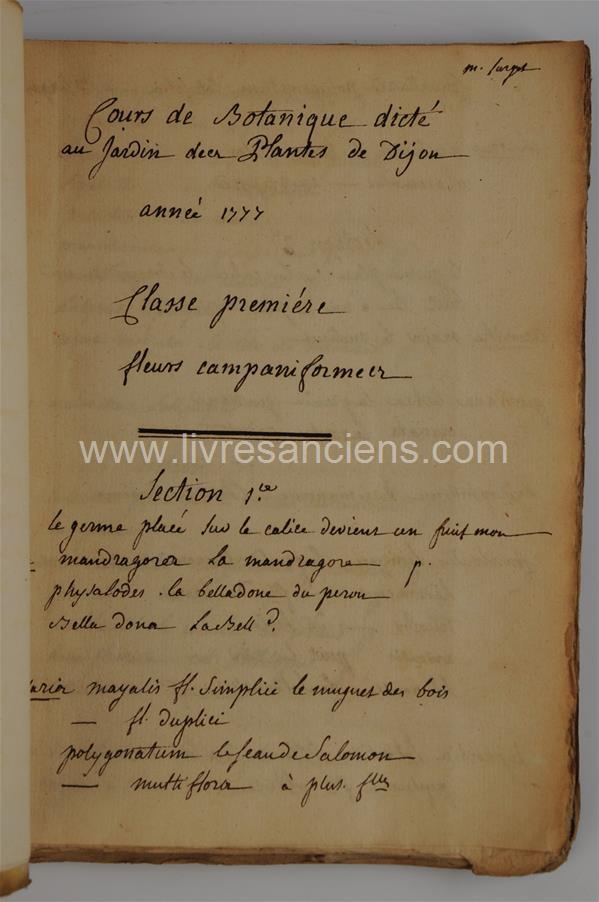 m. Surget
Cours de Botanique dicté
au Jardin des Plantes de Dijon
année 1777
Classe premiére
fleurs campaniformes
www.livresanciens.com
Section 1.re
le germe placé sur le calice devient un fruit mou
mandragora la mandragore p.
physalodes . la belladone du perou
Bella dona La Bell d.
mayalis fl. Simplici le muguet des bois
— fl. duplici
polygonatum le Seau de Salomon
— multiflora à plus. flles